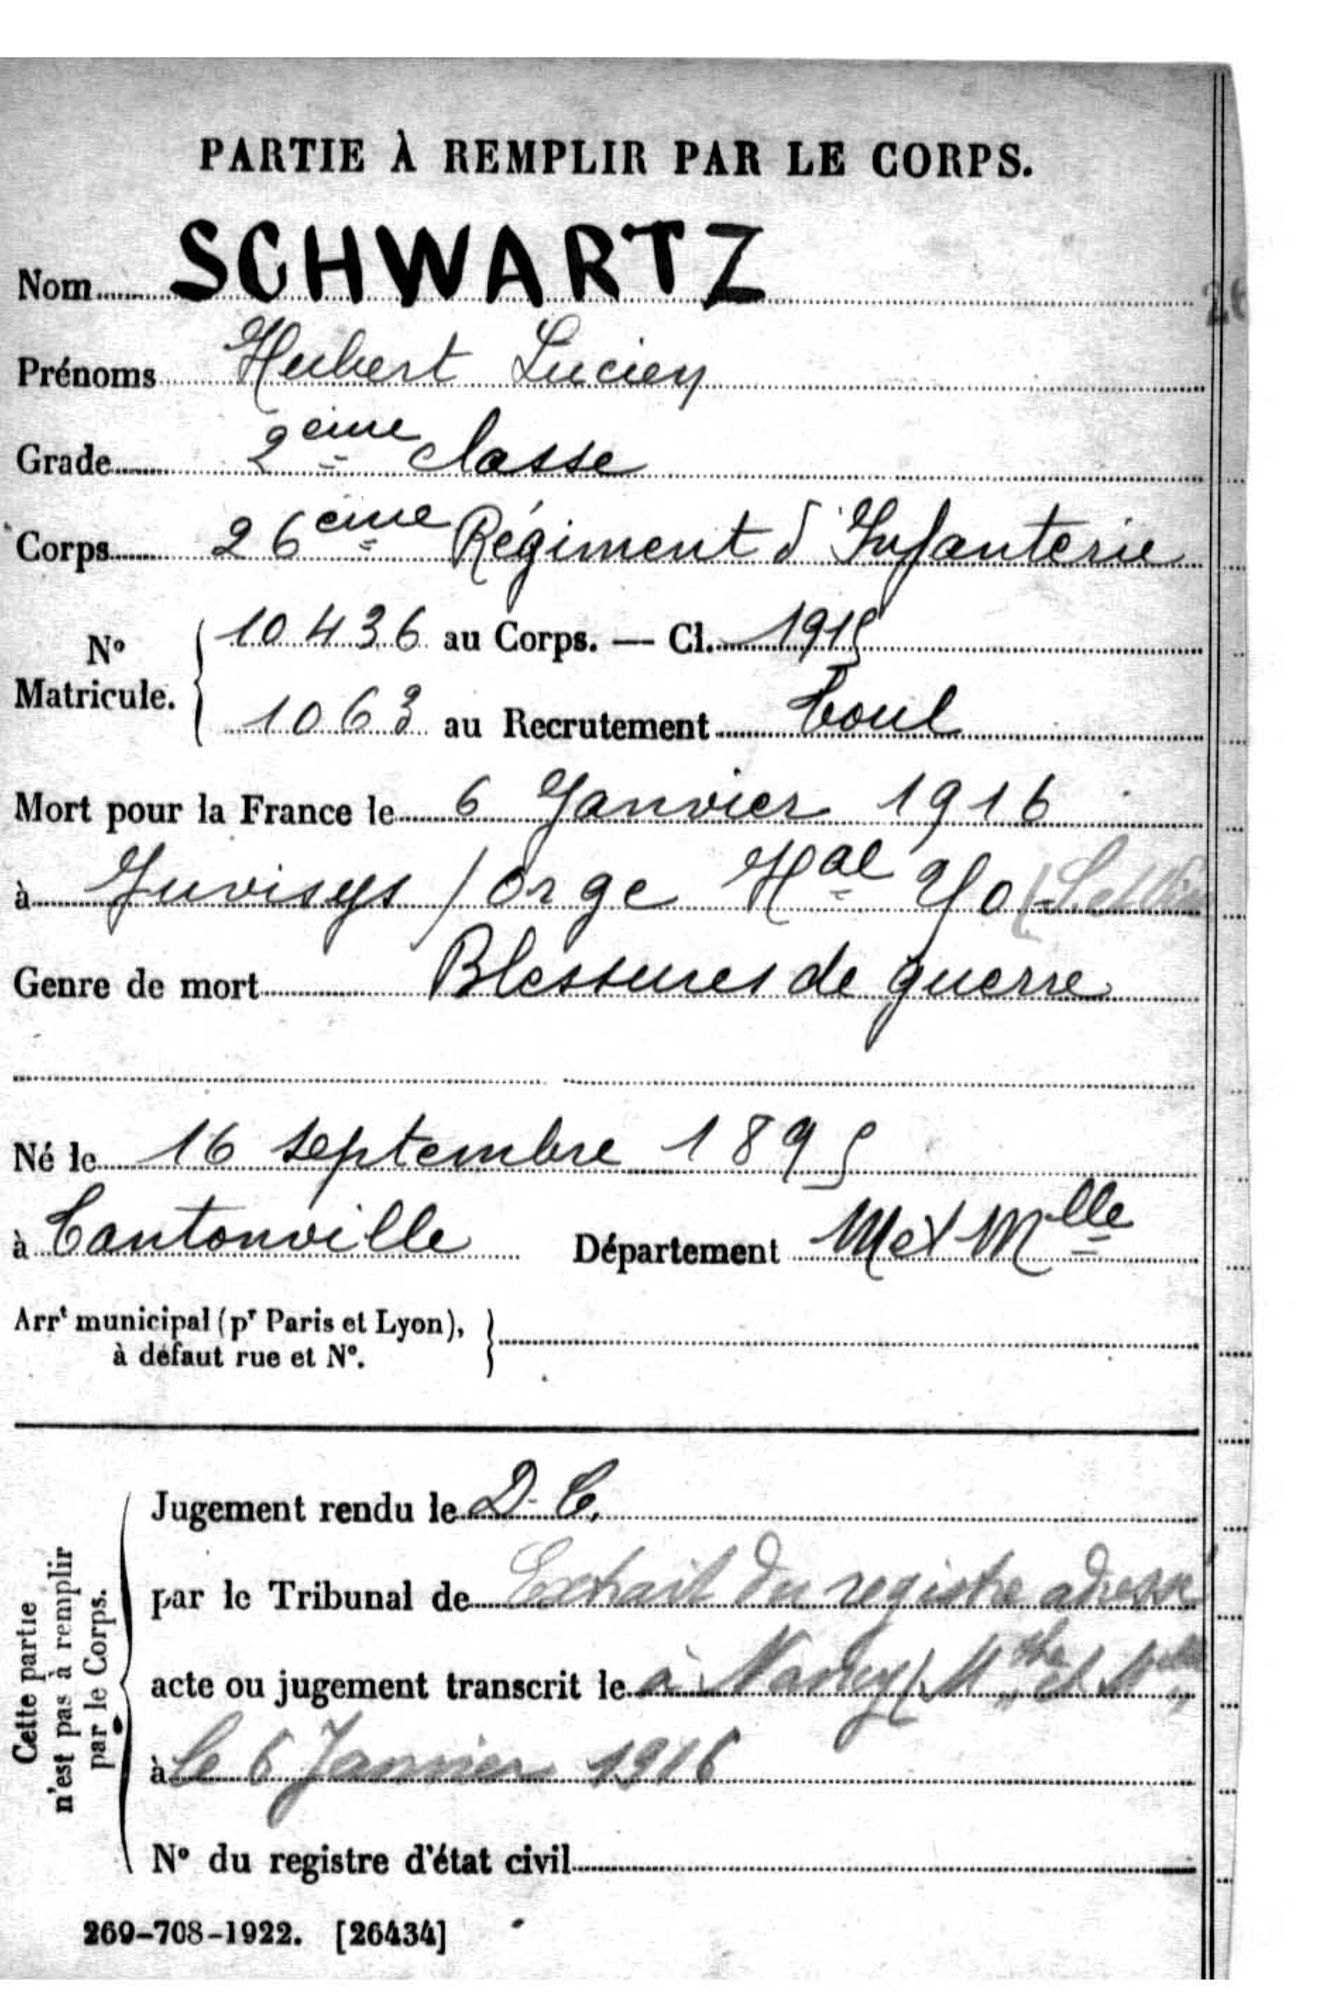 PARTIE À REMPLIR PAR LE CORPS.
Nom SCHWARTZ
Prénoms Hubert Lucien
Grade 2ème classe
Corps 26ème Régiment d'Infanterie
No Matricule. { 10436 au Corps. — Cl. 1915
1063 au Recrutement Toul
Mort pour la France le 6 Janvier 1916
à Juvisys / Orge Hal (S. et Oise
Genre de mort Blessures de guerre
Né le 16 septembre 1895
à Tantonville Département M et Mlle
Arrt municipal (pr Paris et Lyon), }
à défaut rue et No.
Cette partie n'est pas à remplir par le Corps.
Jugement rendu le D. C.
par le Tribunal de Extrait du registre adressé
acte ou jugement transcrit le à Nancy (Mthe et Mlle
à le 6 Janvier 1916
No du registre d'état civil
269-708-1922. [26434]